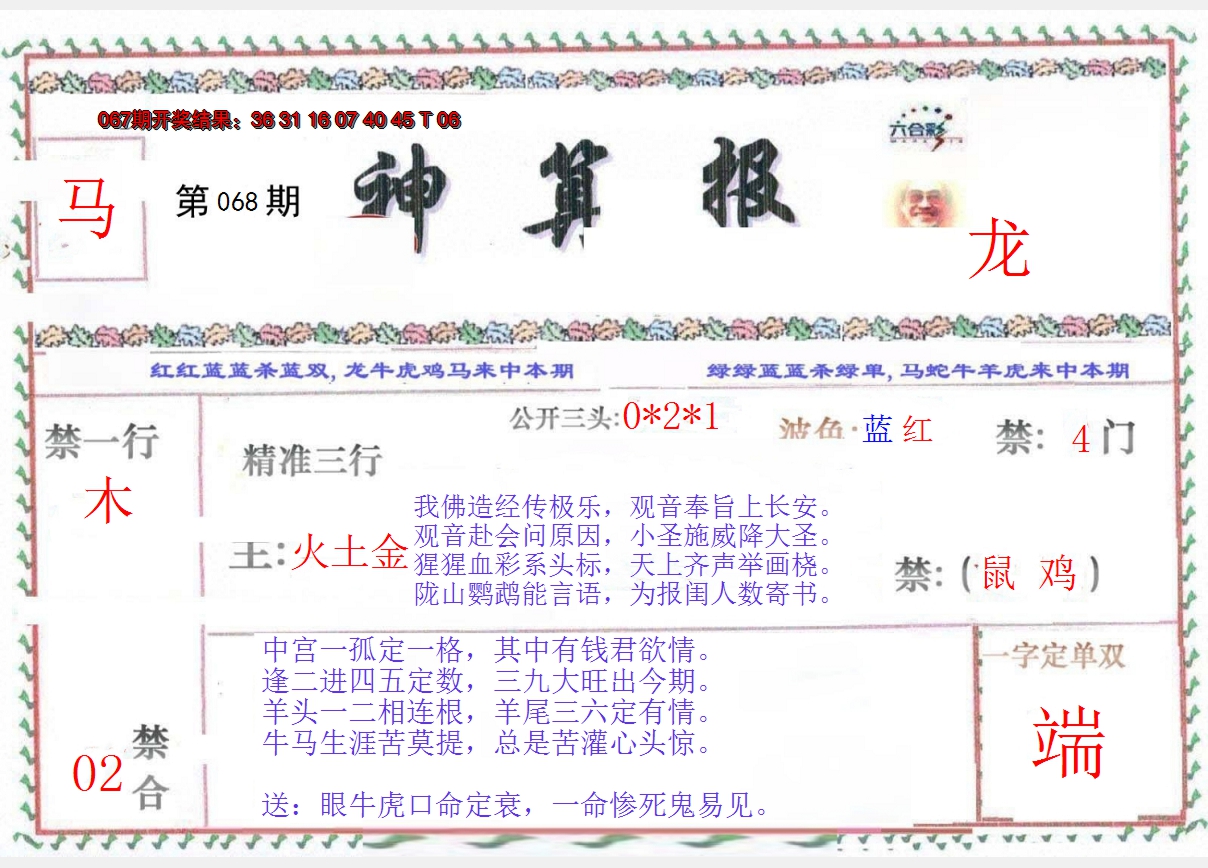 067期开奖结果：36 31 16 07 40 45 T 06
六合彩
马
第 068 期
神算报
龙
红红蓝蓝杀蓝双,龙牛虎鸡马来中本期
绿绿蓝蓝杀绿单,马蛇牛羊虎来中本期
禁一行
木
精准三行
主:火土金
公开三头:0*2*1
波色:蓝 红
禁: 4门
我佛造经传极乐，观音奉旨上长安。
观音赴会问原因，小圣施威降大圣。
猩猩血彩系头标，天上齐声举画桡。
陇山鹦鹉能言语，为报闺人数寄书。
禁:(鼠 鸡)
中宫一孤定一格，其中有钱君欲情。
逢二进四五定数，三九大旺出今期。
羊头一二相连根，羊尾三六定有情。
牛马生涯苦莫提，总是苦灌心头惊。
送：眼牛虎口命定衰，一命惨死鬼易见。
02
禁合
一字定单双
端